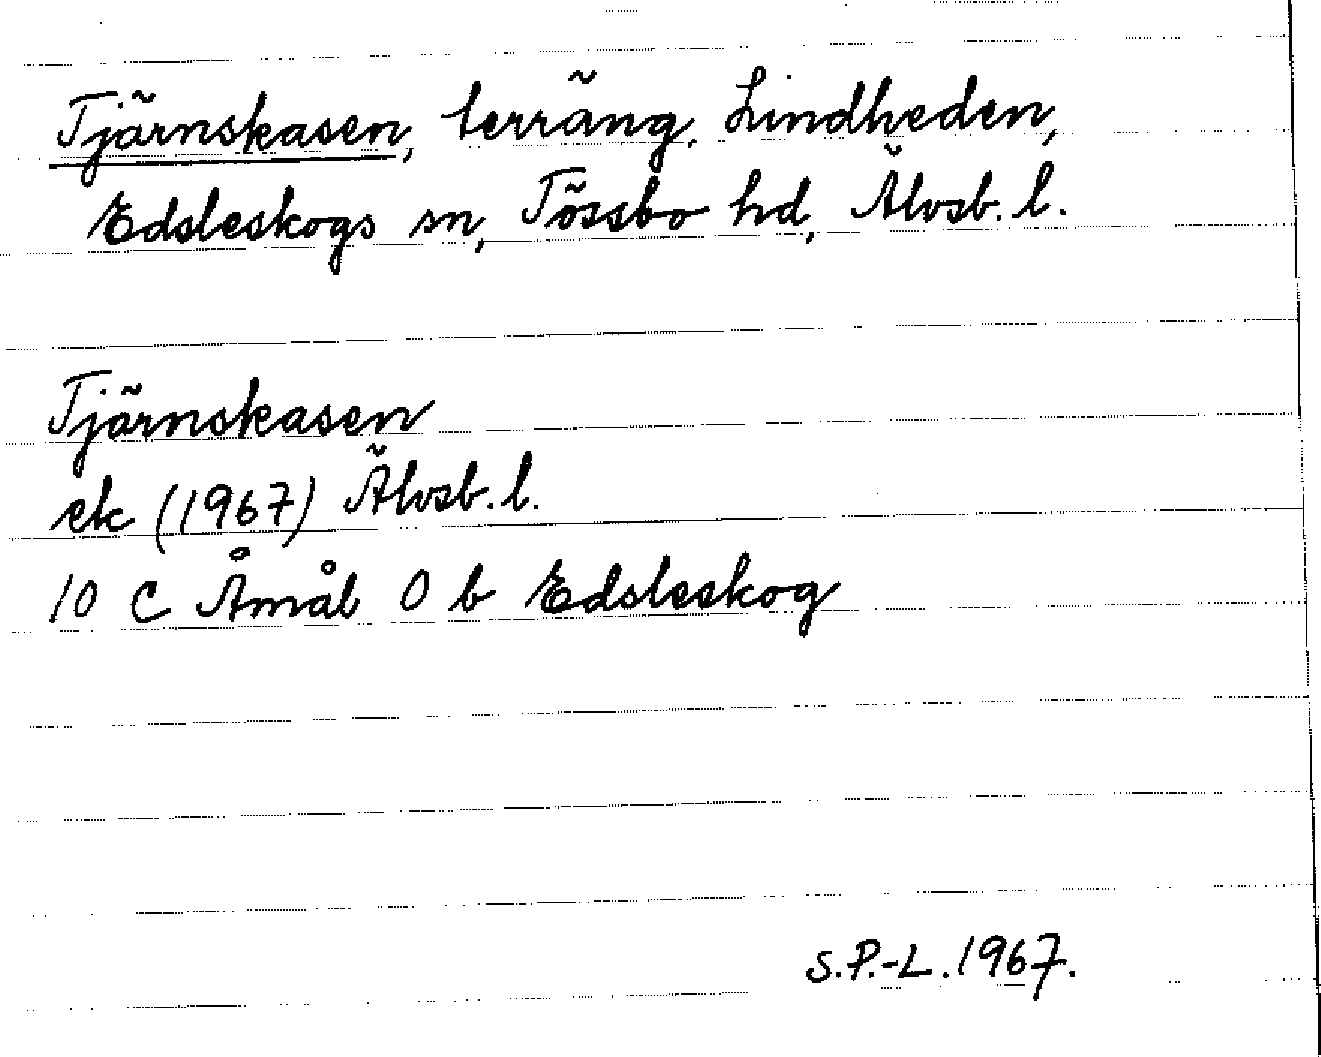 Tjärnskasen, terräng. Lindheden,
Edsleskogs sn, Tössbo hd, Älvsb. l.
Tjärnskasen
ek (1967) Älvsb. l.
10 C Åmål 0 b Edsleskog
S.P.-L. 1967.